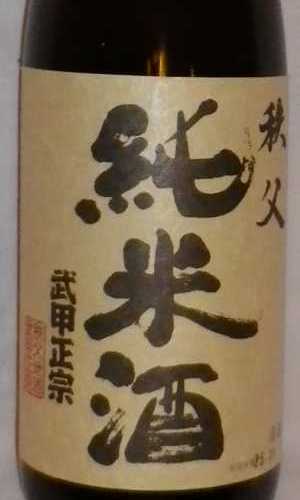 秩父
純米酒
武甲正宗